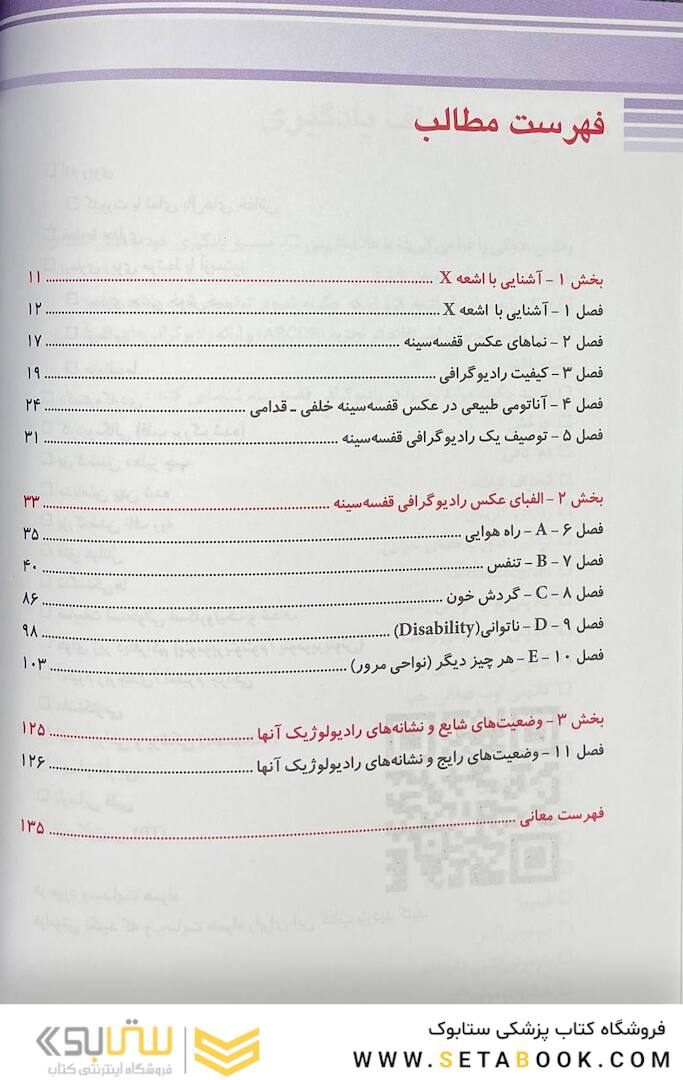 فهرست مطالب
بخش ۱ - آشنایی با اشعه X ........ ۱۱
فصل ۱ - آشنایی با اشعه X ........ ۱۲
فصل ۲ - نماهای عکس قفسه‌سینه ........ ۱۷
فصل ۳ - کیفیت رادیوگرافی ........ ۱۹
فصل ۴ - آناتومی طبیعی در عکس قفسه‌سینه خلفی ـ قدامی ........ ۲۴
فصل ۵ - توصیف یک رادیوگرافی قفسه‌سینه ........ ۳۱
بخش ۲ - الفبای عکس رادیوگرافی قفسه‌سینه ........ ۳۳
فصل ۶ - A - راه هوایی ........ ۳۵
فصل ۷ - B - تنفس ........ ۴۰
فصل ۸ - C - گردش خون ........ ۸۶
فصل ۹ - D - ناتوانی(Disability) ........ ۹۸
فصل ۱۰ - E - هر چیز دیگر (نواحی مرور) ........ ۱۰۳
بخش ۳ - وضعیت‌های شایع و نشانه‌های رادیولوژیک آنها ........ ۱۲۵
فصل ۱۱ - وضعیت‌های رایج و نشانه‌های رادیولوژیک آنها ........ ۱۲۶
فهرست معانی ........ ۱۳۵
فروشگاه کتاب پزشکی ستابوک
WWW.SETABOOK.COM
ستابوک
فروشگاه اینترنتی کتاب